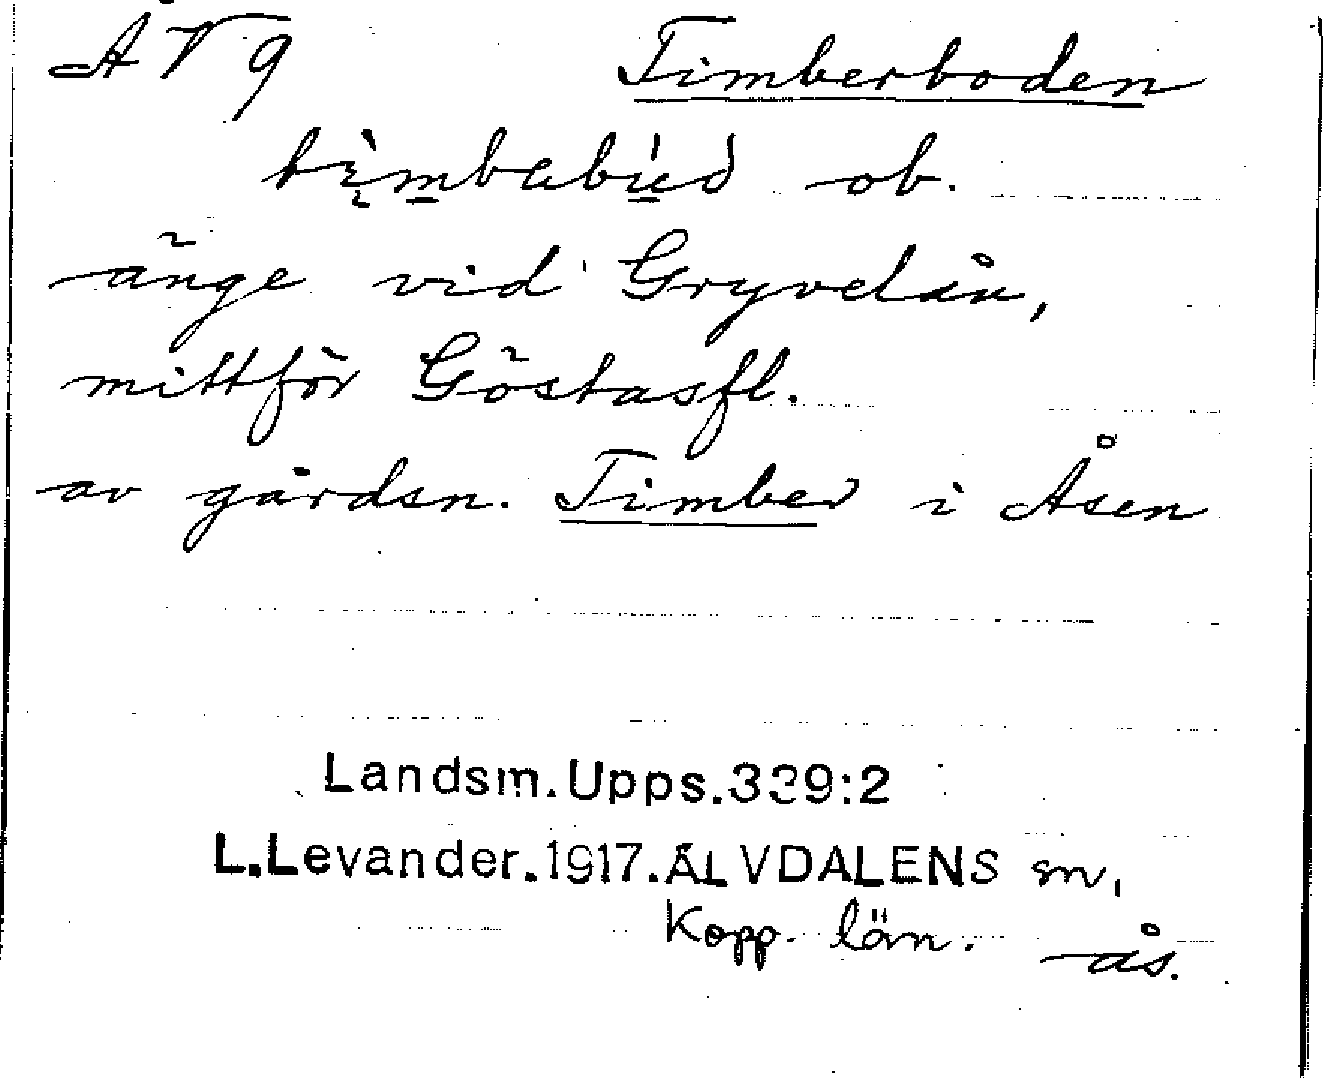 ÅV 9 Timberboden
tìmbabúd ob.
änge vid Gryvelån,
mittför Göstasfl.
av gårdsn. Timber i Åsen
Landsm.Upps.339:2
L.Levander.1917.ÄLVDALENS sn,
Kopp. län. ås.